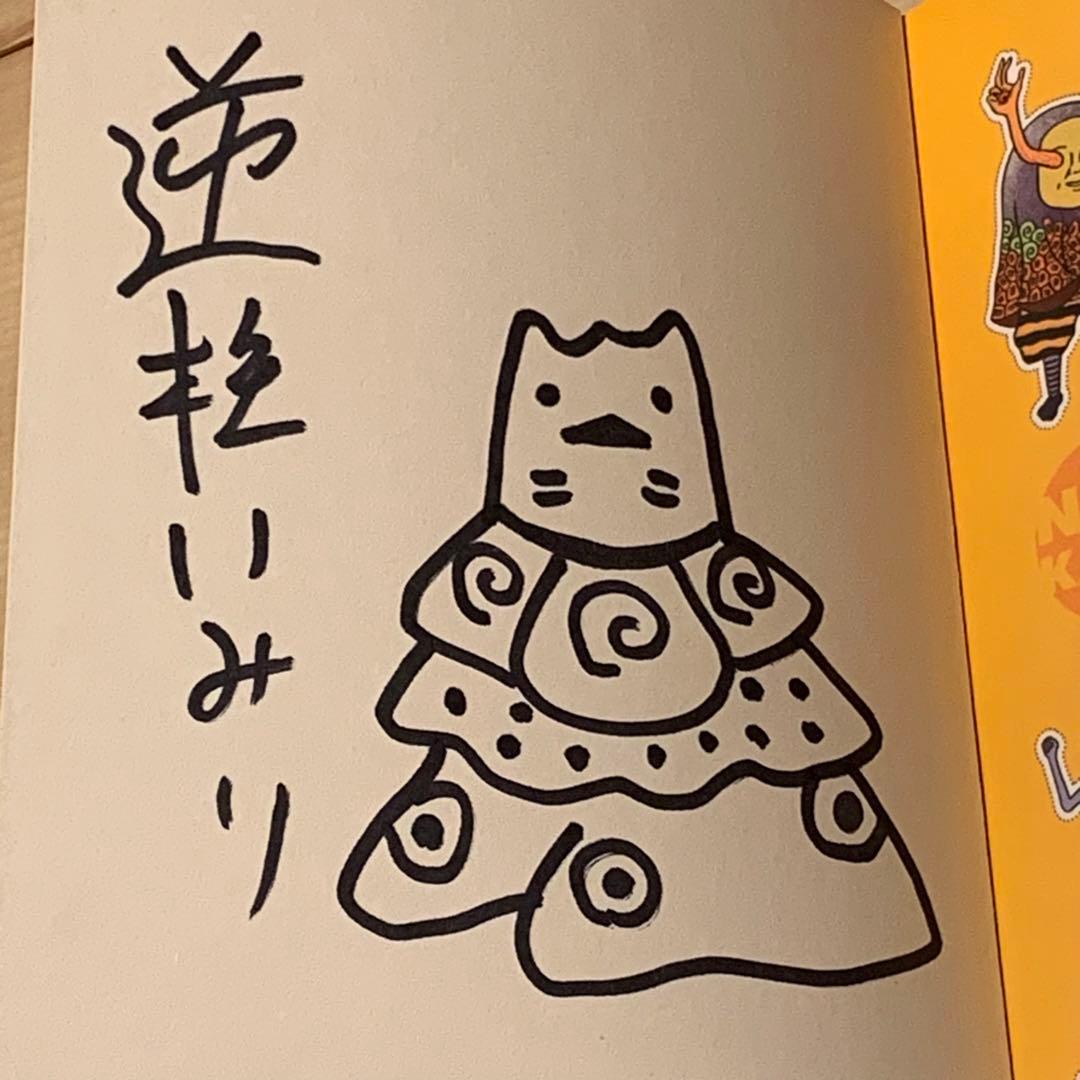 逆柱いみり